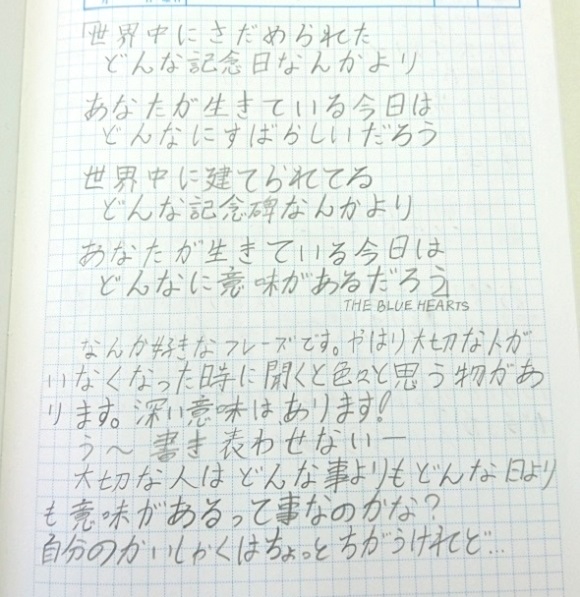 「世界中にさだめられた
どんな記念日なんかより
あなたが生きている今日は
どんなにすばらしいだろう
世界中に建てられてる
どんな記念碑なんかより
あなたが生きている今日は
どんなに意味があるだろう」
THE BLUE HEARTS
なんか好きなフレーズです。やはり大切な人が
いなくなった時に聞くと色々と思う物があ
ります。深い意味は、あります!
う〜書き表わせないー
大切な人はどんな事よりもどんな日より
も意味があるって事なのかな?
自分のかいしゃくはちょっとちがうけれど…